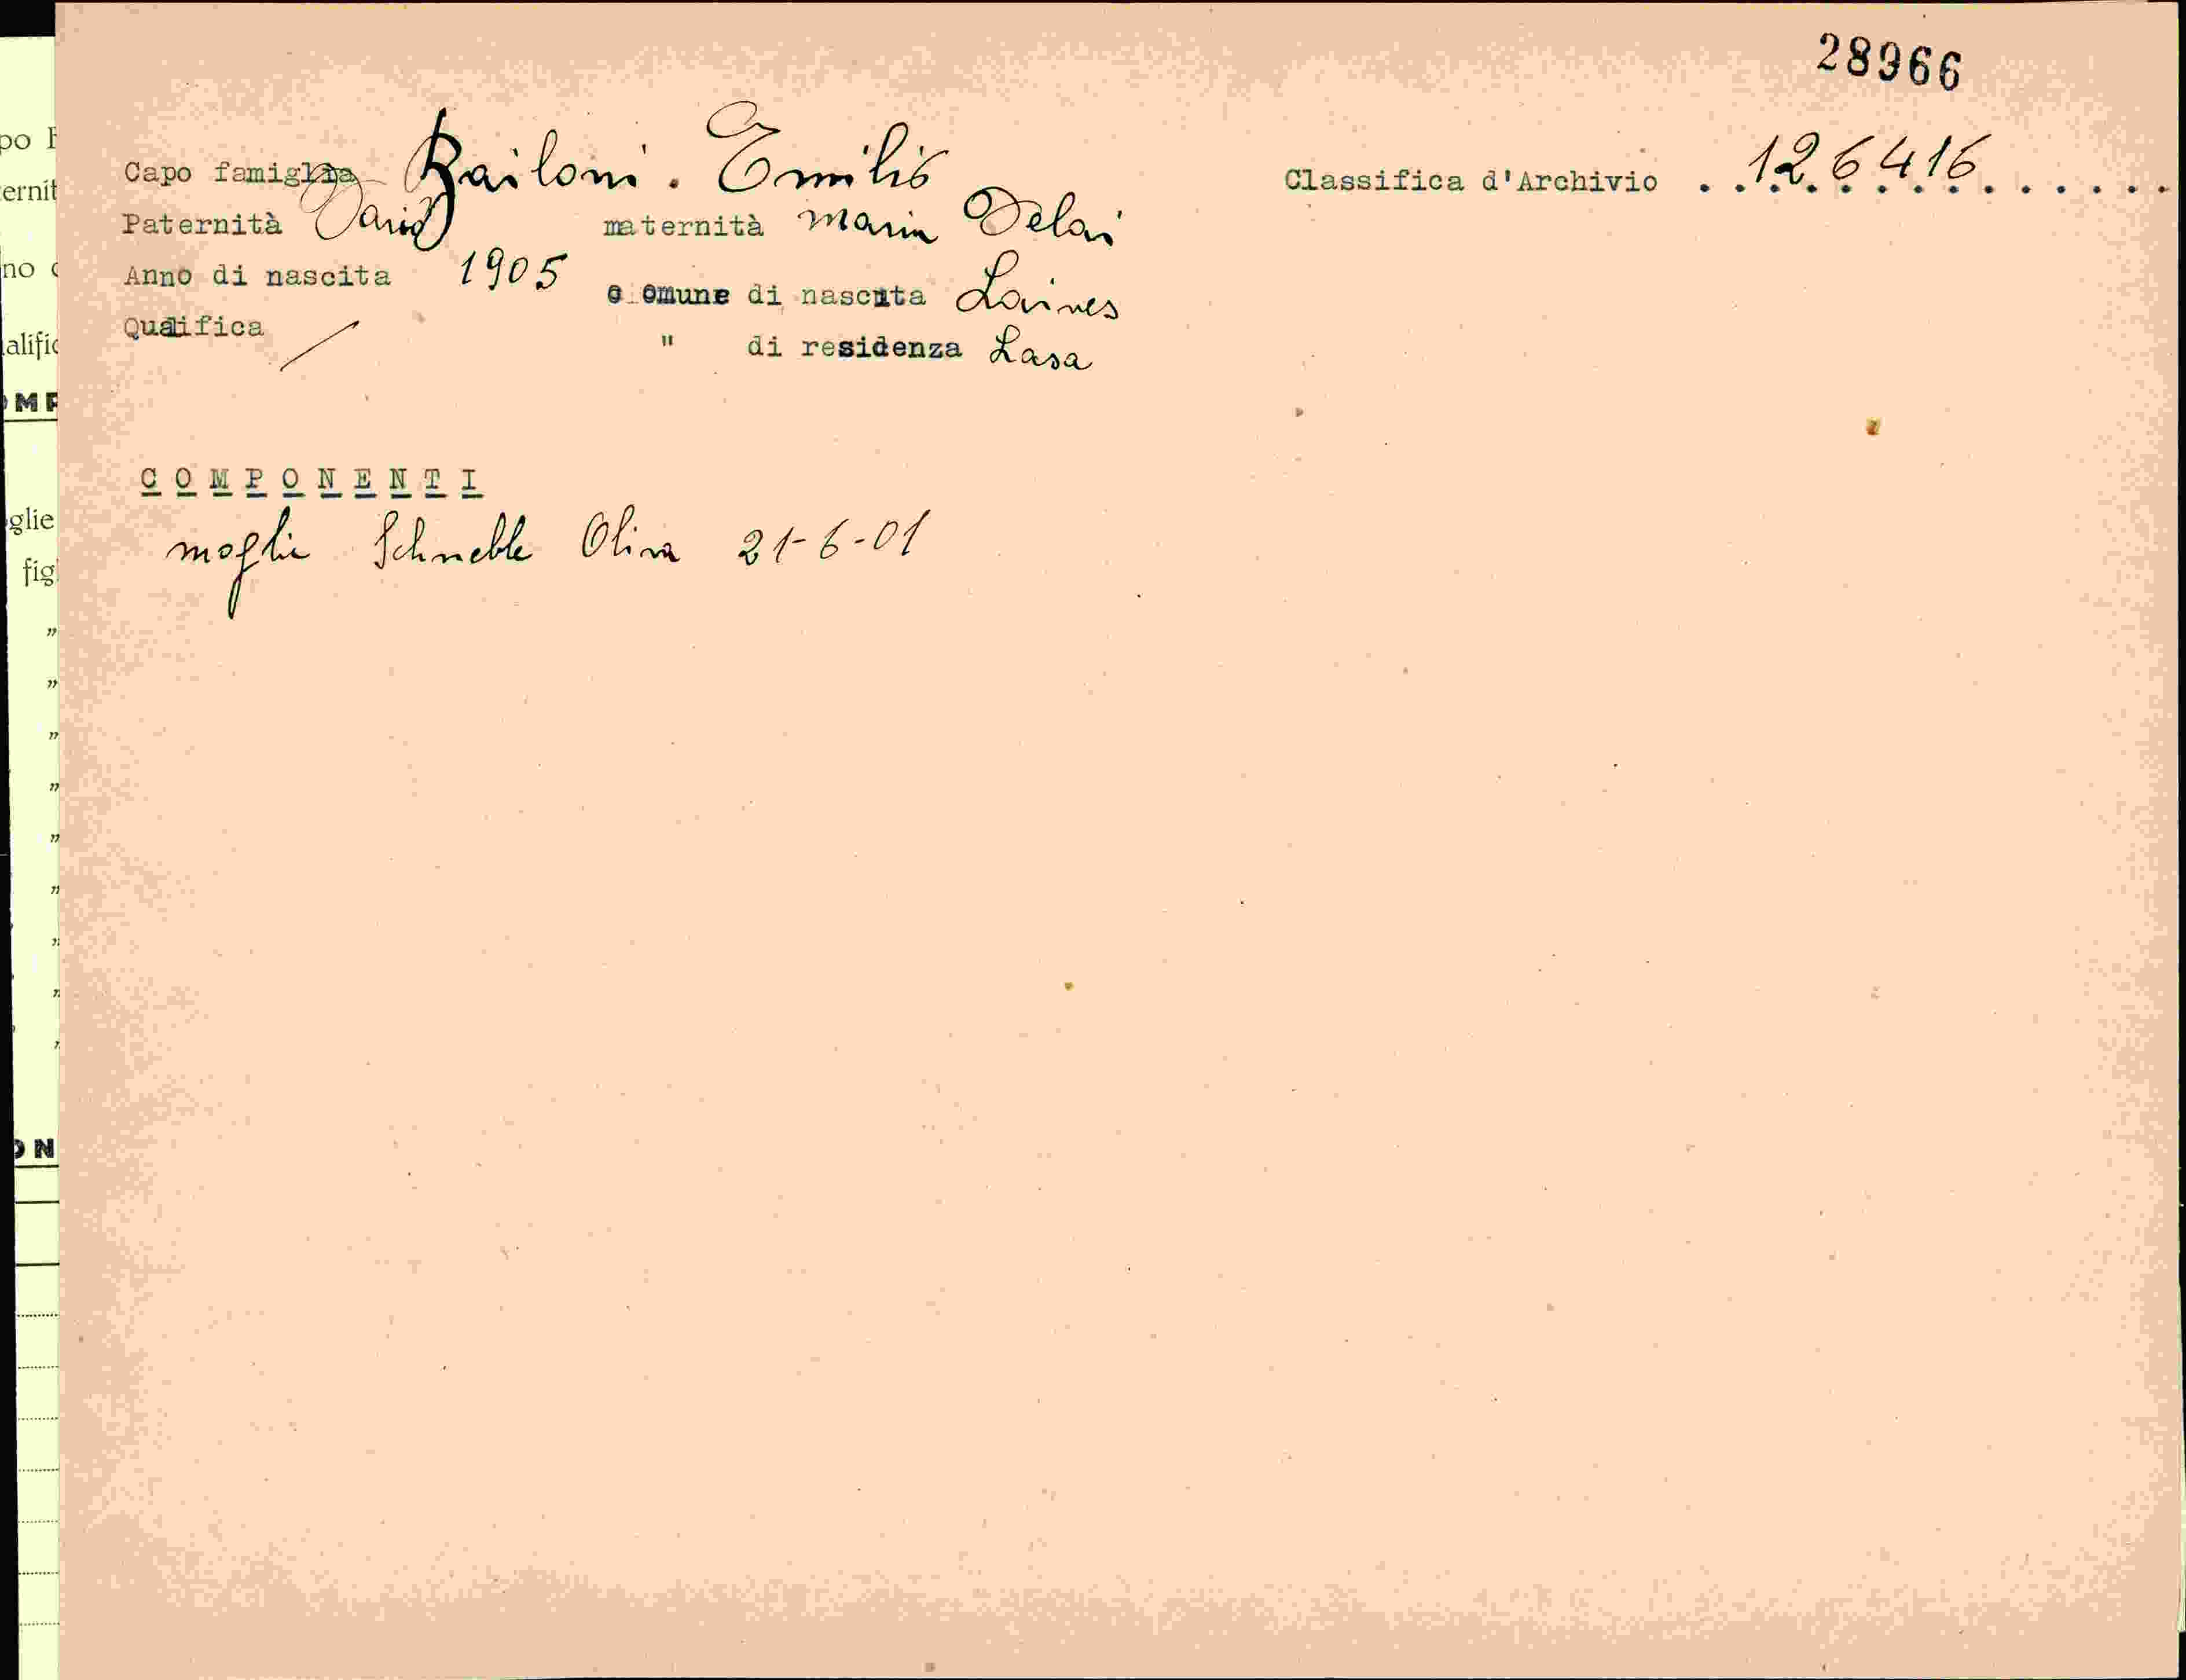 28966
Capo famiglia Bailoni. Emilio
Classifica d'Archivio . . 126416 . . . . .
Paternità David maternità Maria Delai
Anno di nascita 1905 comune di nascita Laives
Qualifica / " di residenza Lasa
COMPONENTI
moglie Schneble Oliva 21-6-01
po
ernit
no
alific
OMP
glie
fig
"
"
"
"
"
"
"
"
"
ON